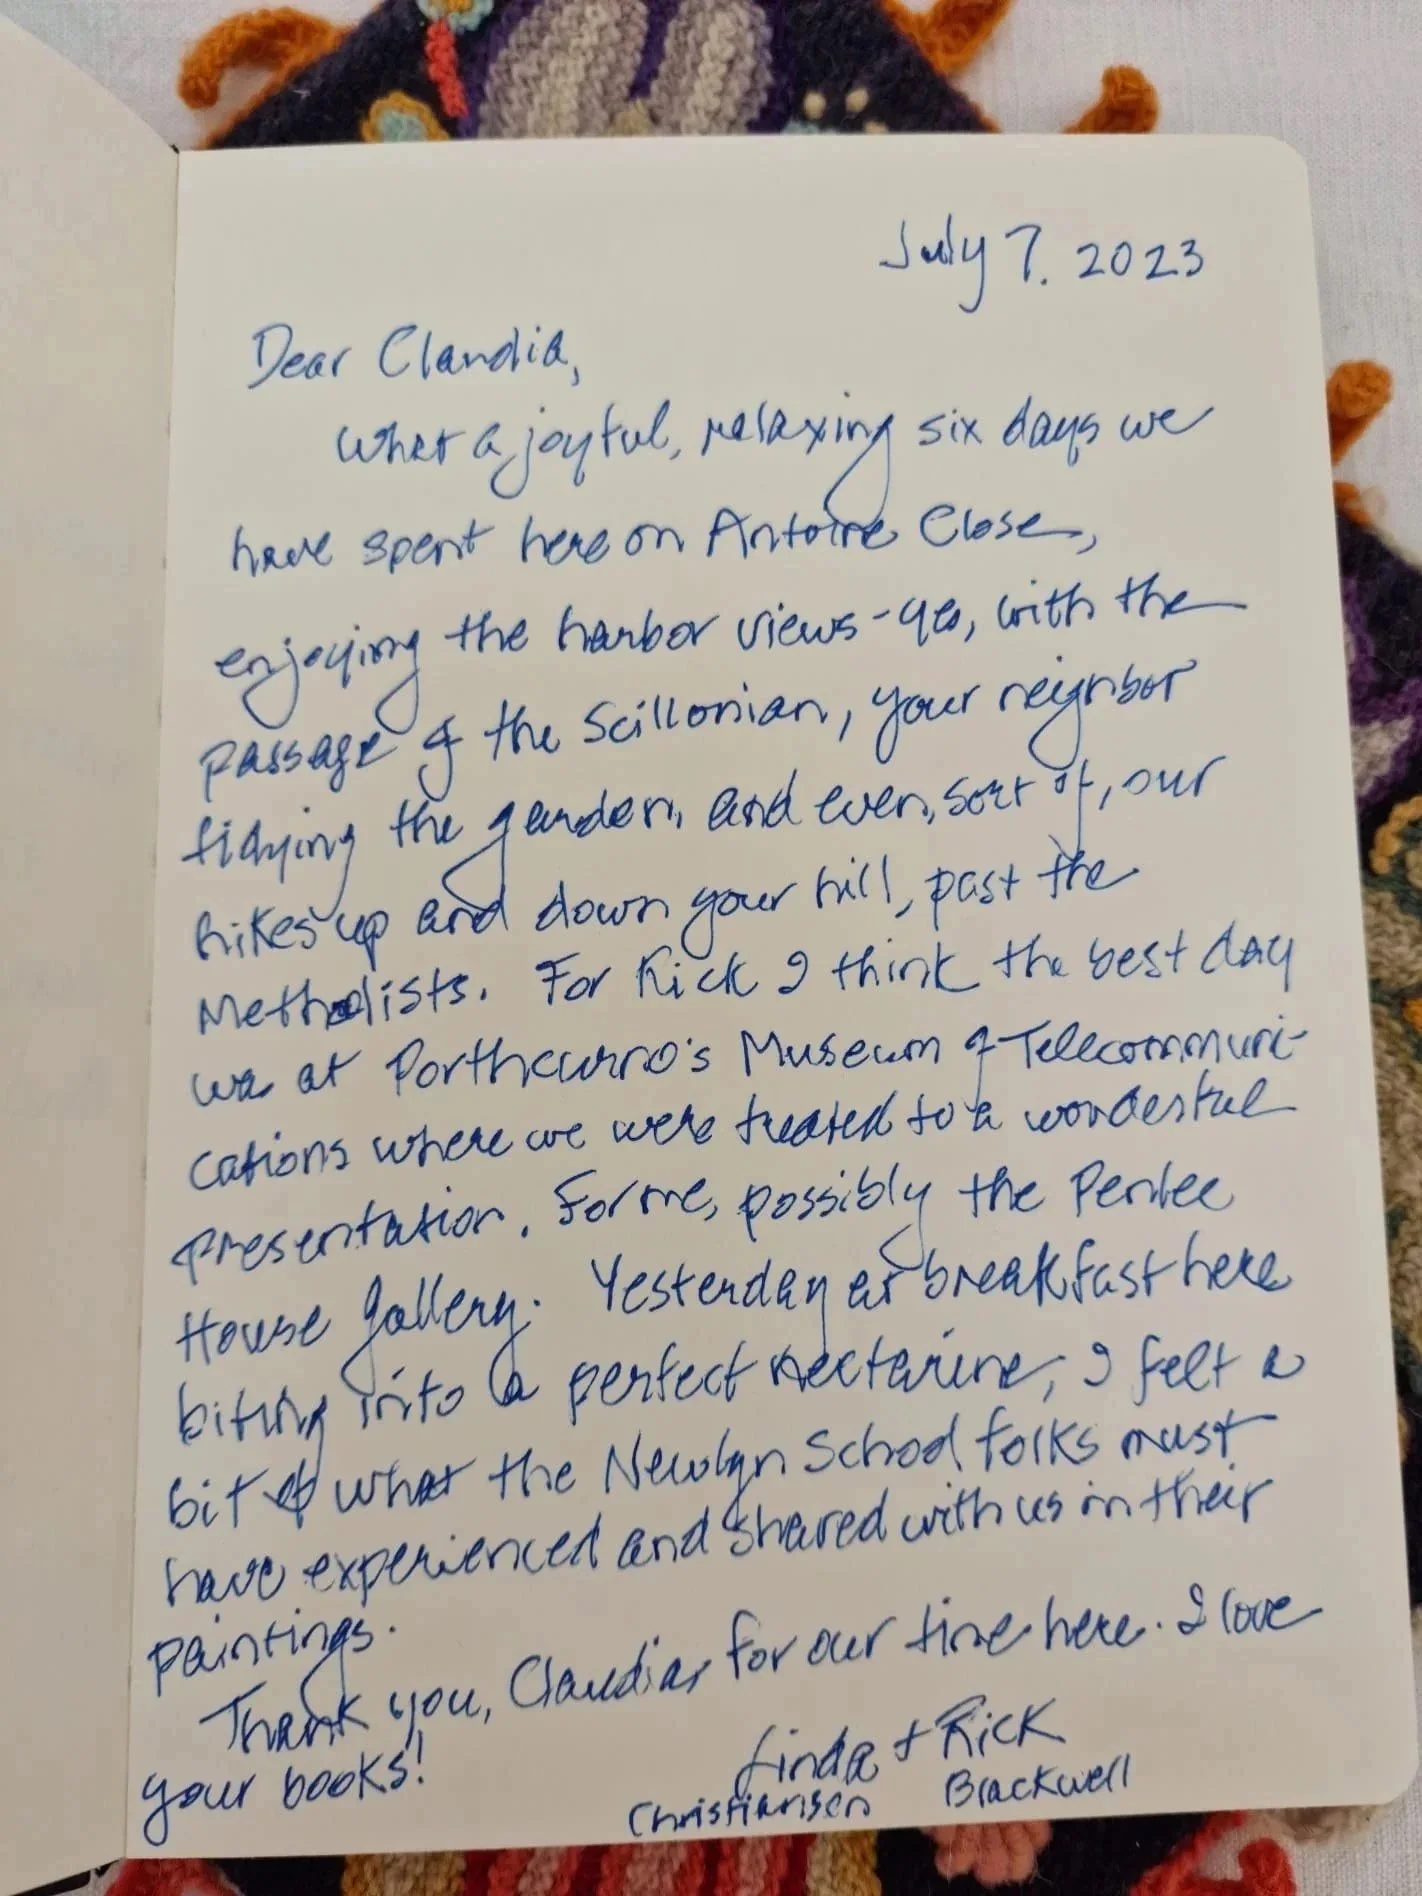 July 7. 2023
Dear Claudia,
What a joyful, relaxing six days we
have spent here on Antoine Close,
enjoying the harbor views - yes, with the
passage of the Scillonian, your neighbor
tidying the garden, and even, sort of, our
hikes up and down your hill, past the
Methodists. For Rick I think the best day
was at Porthcurno's Museum of Telecommuni-
cations where we were treated to a wonderful
presentation. For me, possibly the Penlee
House Gallery. Yesterday at breakfast here
biting into a perfect nectarine, I felt a
bit of what the Newlyn School folks must
have experienced and shared with us in their
paintings.
Thank you, Claudia, for our time here. I love
your books!
Linda + Rick
Christiansen Blackwell